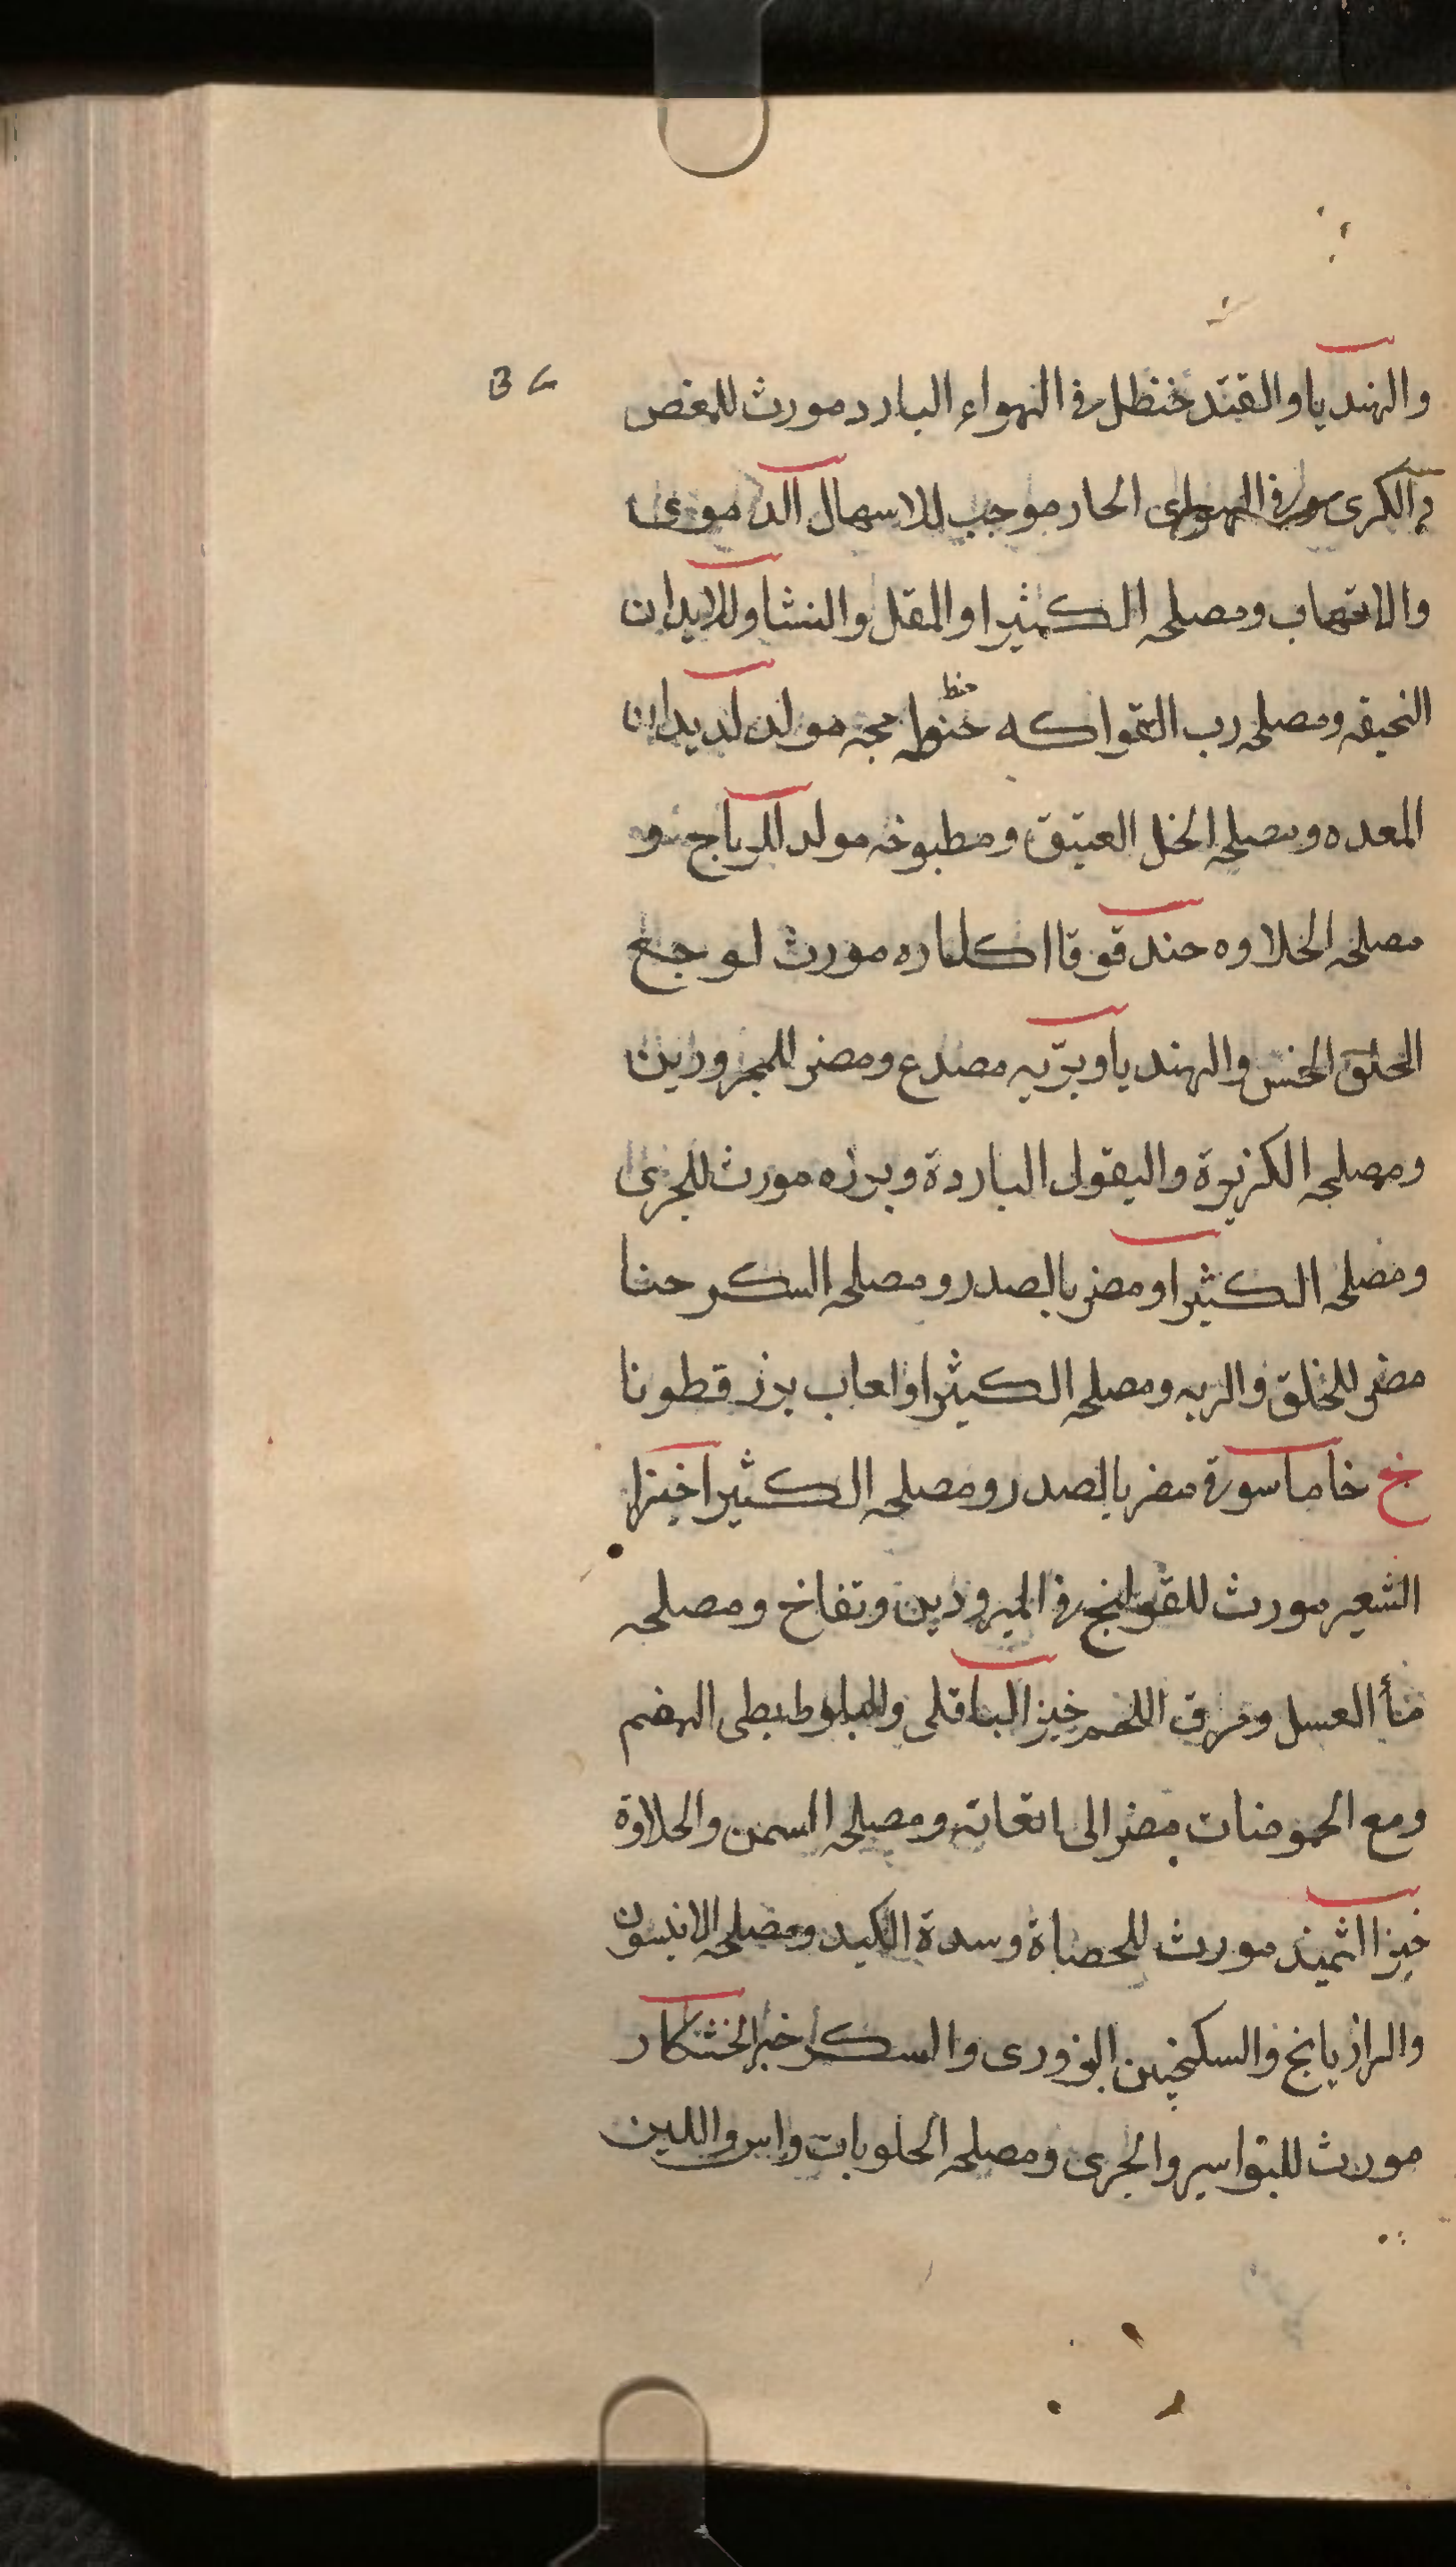 والهنديا والقند خنظل فى الهواء البارد مورث للمغص
الكرى الحار موجب للاسهال الدموى
والالتهاب ومصلحه الكثيرا والمقل والنشا وللابدان
النحيفه ومصلحه رب الفواكه حنطه مولد لديدان
المعده ومصلحه الخل العتيق ومطبوخه مولد للرياح و
مصلحه الحلاوه حندقوقا مورث لوجع
الحلق الخس والهنديا وبرّيه مصدع ومضر للمحرورين
ومصلحه الكزبرة والبقول الباردة وبرزه مورث للجرى
ومصلحه الكثيرا ومضر بالصدر ومصلحه السكر حنا
مضر للحلق والريه ومصلحه الكثيرا ولعاب بزر قطونا
خ خاماسوقة مضر بالصدر ومصلحه الكثيرا خبز
الشعير مورث للقولنج فى المبرودين ونفاخ ومصلحه
مأ العسل ومرق اللحم خبز الباقلى والبلوط بطى الهضم
ومع الحموضات مضر الى ومصلحه السمن والحلاوة
خبز الثميذ مورث للحصاة وسدة الكبد ومصلحه الانيسون
والرازيانج والسكنجبين البزورى والسكر خبز الخشكار
مورث للبواسير والجرى ومصلحه الحلويات واللبن